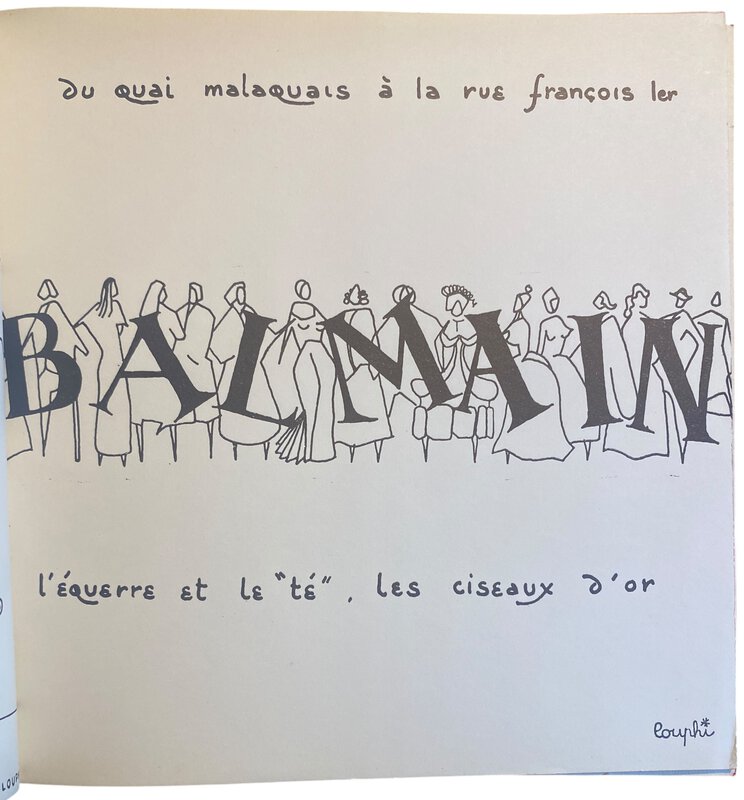 du quai malaquais à la rue françois Ier
BALMAIN
l'équerre et le "té", les ciseaux d'or
louphi*
LOUP